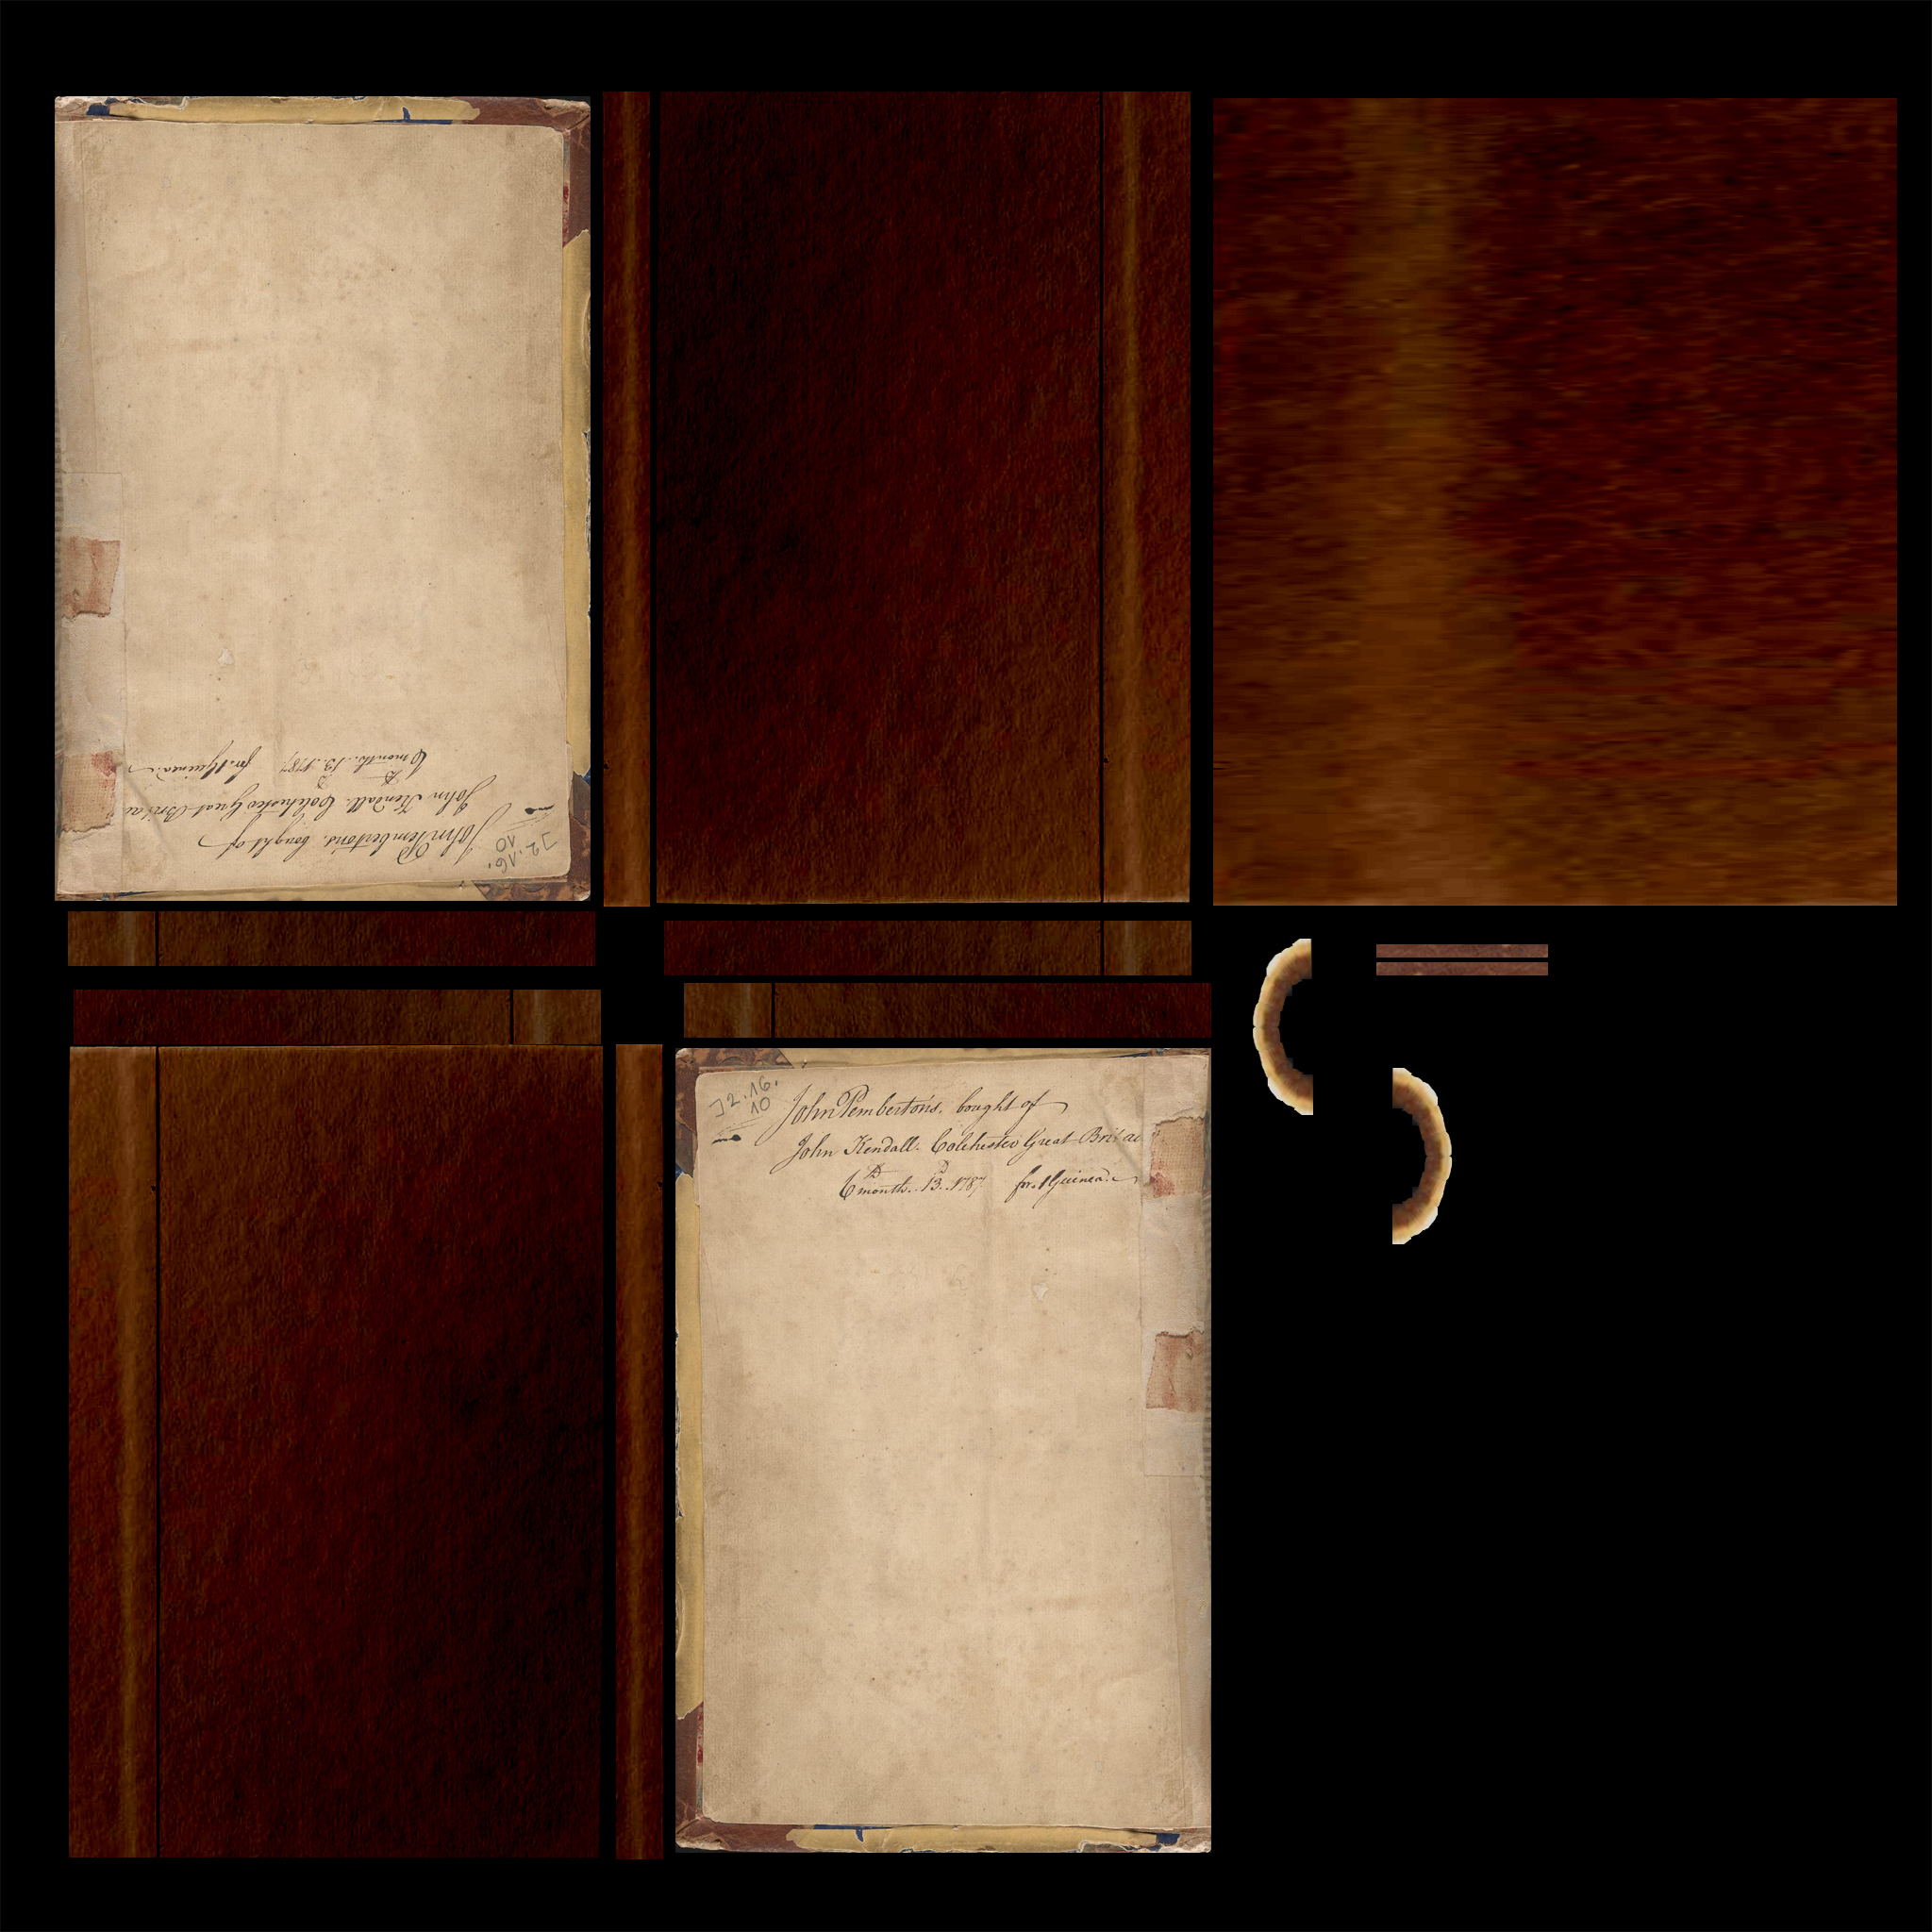 J2.16.
10
John Pemberton's. bought of
John Kendall. Colchester Great Britain
6th month. 13. 1787. for. 1 Guinea.
J2.16.
10
John Pemberton's. bought of
John Kendall. Colchester Great Britain
6th month. 13. 1787. for. 1 Guinea.